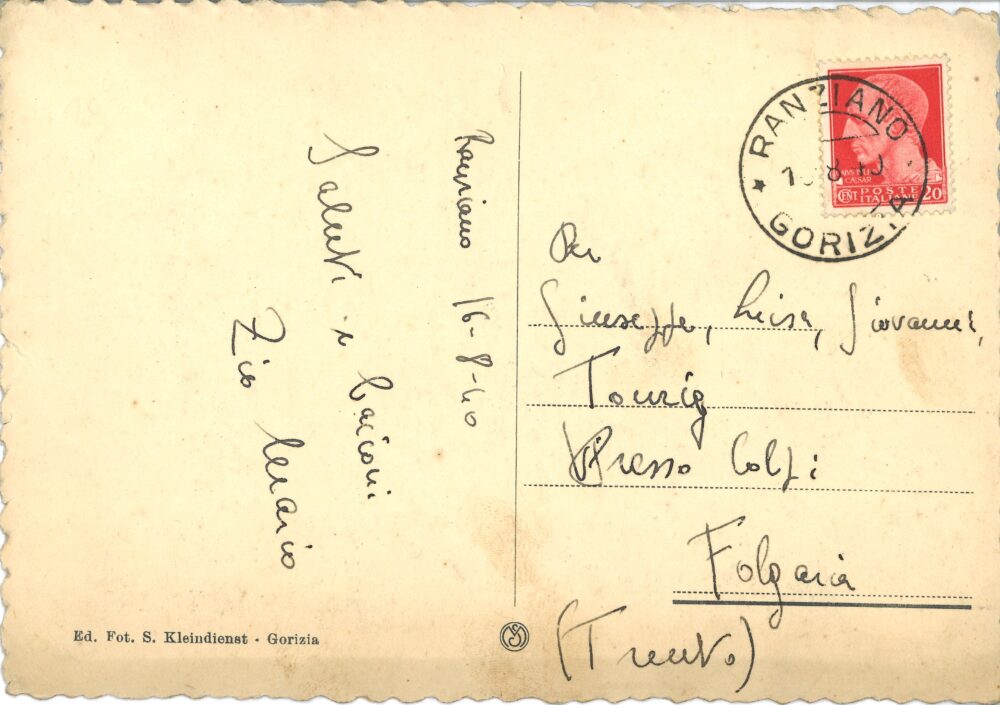 Ranziano 16-8-40
Saluti e bacioni
Zio Mario
Ed. Fot. S. Kleindienst - Gorizia
RANZIANO
8 40
GORIZIA
CAESAR
CENT POSTE ITALIANE 20
Per
Giuseppe, Luisa, Giovanni,
Tourig
Presso Colpi
Folgaria
(Trento)